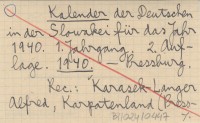 Kalender der Deutschen
in der Slowakei für das Jahr
1940. 1. Jahrgang. 2. Auf-
lage. 1940. Pressburg.
Rec.: Karasek-Langer
Alfred, Karpatenland (Press-